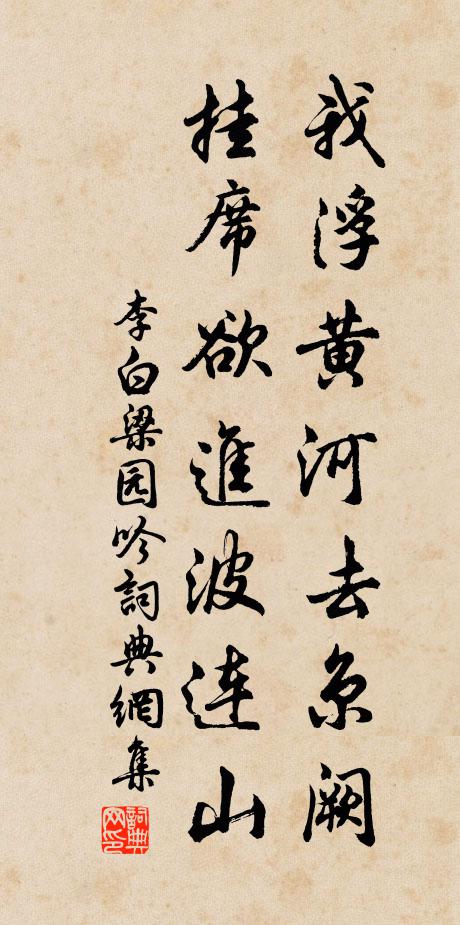 我浮黄河去京闕
挂席欲進波連山
李白梁园吟詞典網集
詞典
网印